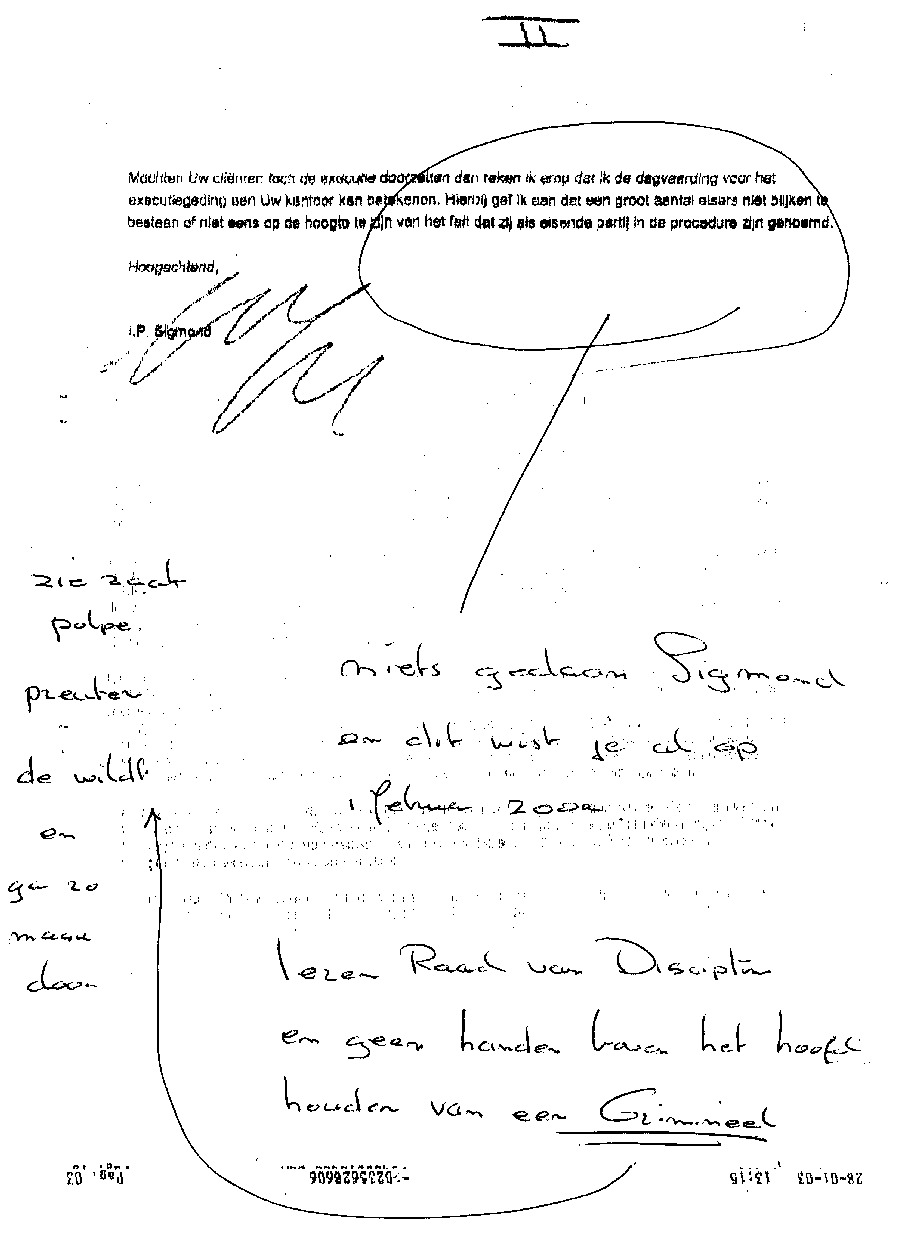 II
Mochten Uw cliënten toch de executie doorzetten dan reken ik erop dat ik de dagvaarding voor het
executiegeding aan Uw kantoor kan betekenen. Hierbij gef ik aan dat een groot aantal eisers niet blijken te
bestaan of niet eens op de hoogte te zijn van het feit dat zij als eisende partij in de procedure zijn genoemd.
Hoogachtend,
I.P. Sigmond
zie zaak
palpe
preuter
de wildt
en
ga zo
maar
door
niets gedaan Sigmond
en dit wist je al op
1 februari
lezen Raad van Disciplin
en geen handen boven het hoofd
houden van een Crimineel
28-01-03 13:15 -0235626606 Pag. 03